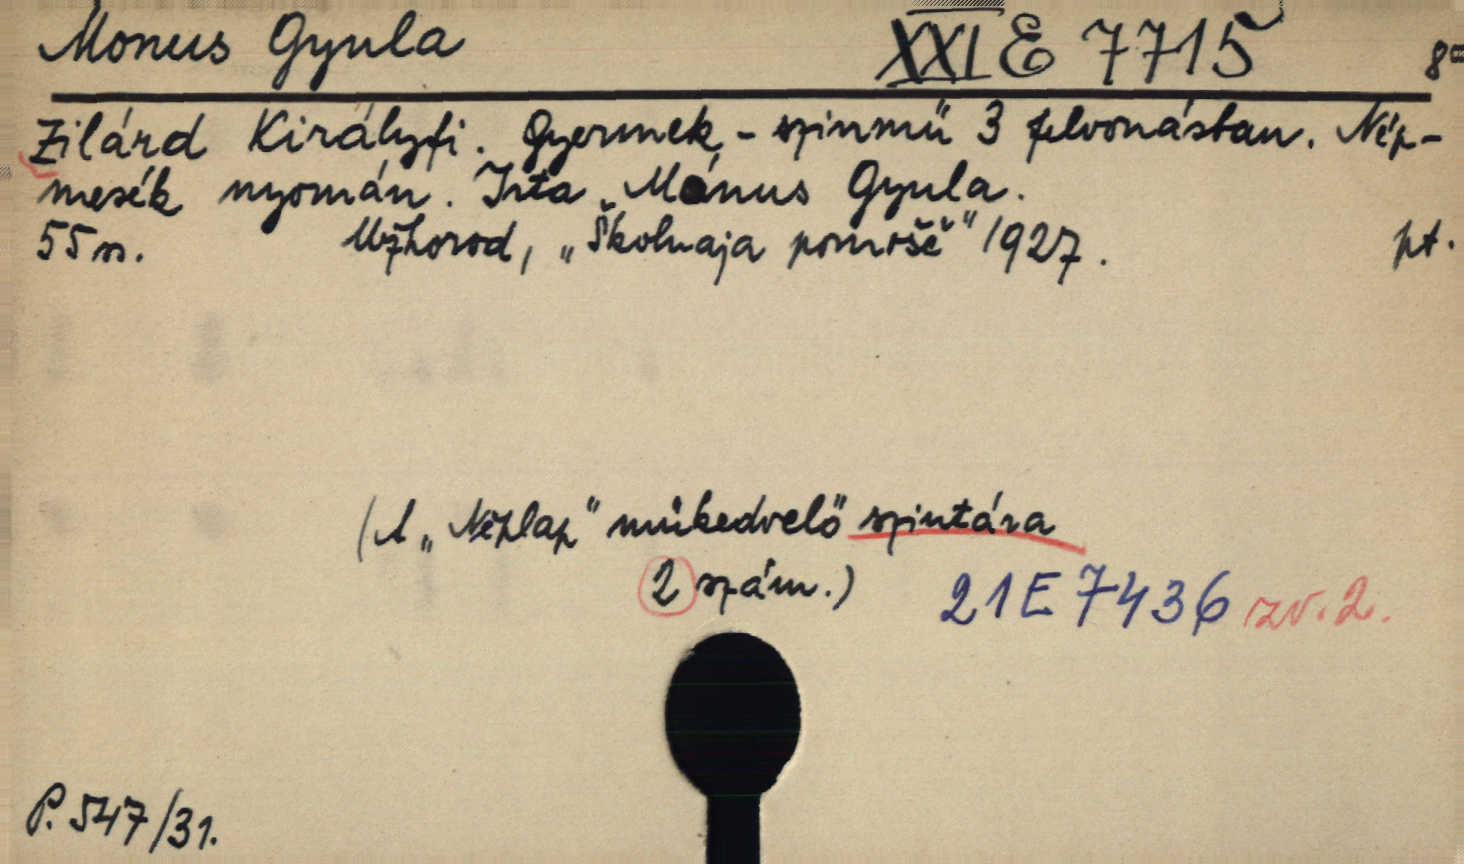 Mónus Gyula XXI E 7715 8°
Zilárd Királyfi. Gyermek-szinmű 3 felvonásban. Nép-
mesék nyomán. Irta Mónus Gyula.
55 n. Užhorod, „Školnaja pomošč" 1927. pt.
(A „Néplap" műkedvelő szintára
2 szám.) 21 E 7436 zv. 2.
P. 547/31.